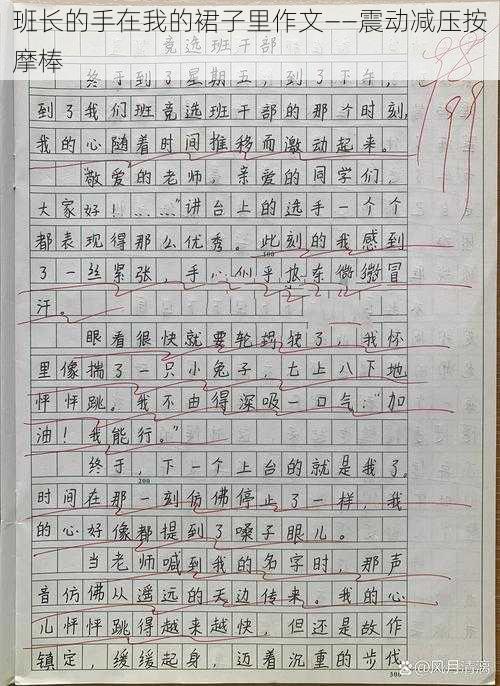 班长的手在我的裙子里作文——震动减压按
摩棒
竞选班干部
终于到了星期五,到了下午,
到了我们班竞选班干部的那个时刻,
我的心随着时间推移而激动起来。
敬爱的老师,亲爱的同学们,
大家好!……"讲台上的选手一个个
都表现得那么优秀。此刻的我感到
了一丝紧张,手心似乎在微微冒
汗。
眼看很快就要轮了,我怀
里像揣了一只小兔子,七上八下地
怦怦跳。我不由得深吸一口气:"加
油!我能行。"
终于,下一个上台的就是我了。
200
时间在那一刻仿佛停止了一样,我
的心好像都提到了嗓子眼儿。
当老师喊到我的名字时,那声
音仿佛从遥远的天边传来。我的心
儿怦怦跳得越来越快,但还是故作
镇定,缓缓起身,迈着沉重的步伐
300
98
99
@风月清漓